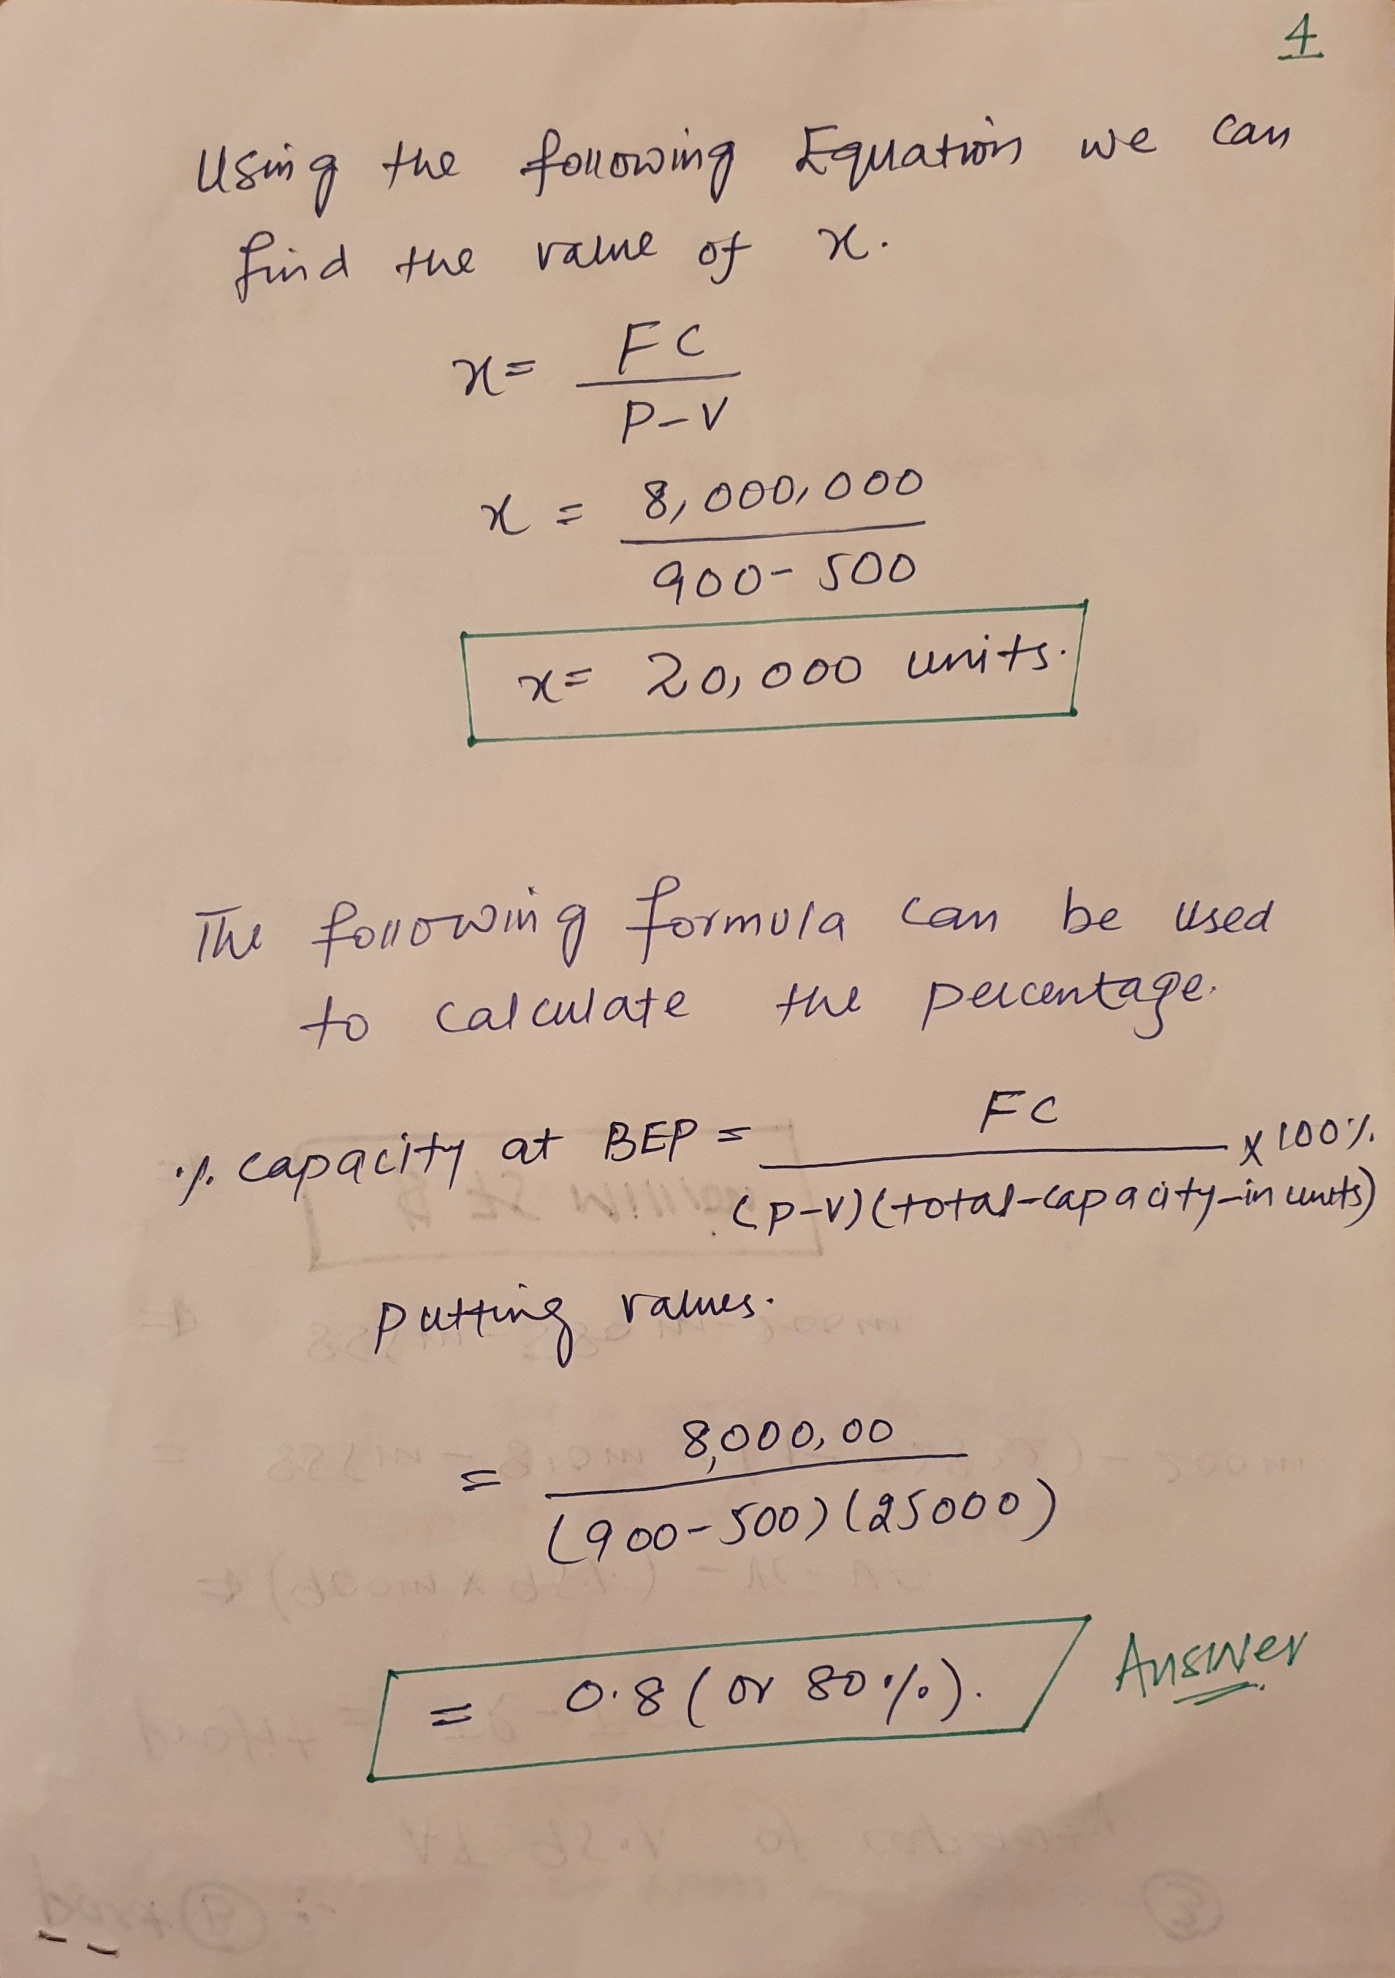 4
Using the following Equation we can
find the value of x.
x = FC / P-V
x = 8,000,000 / 900-500
x = 20,000 units.
The following formula can be used
to calculate the percentage.
% capacity at BEP = FC / (P-V)(total-capacity-in units) x 100%
putting values.
= 8,000,00 / (900-500)(25000)
= 0.8 (or 80%). Answer